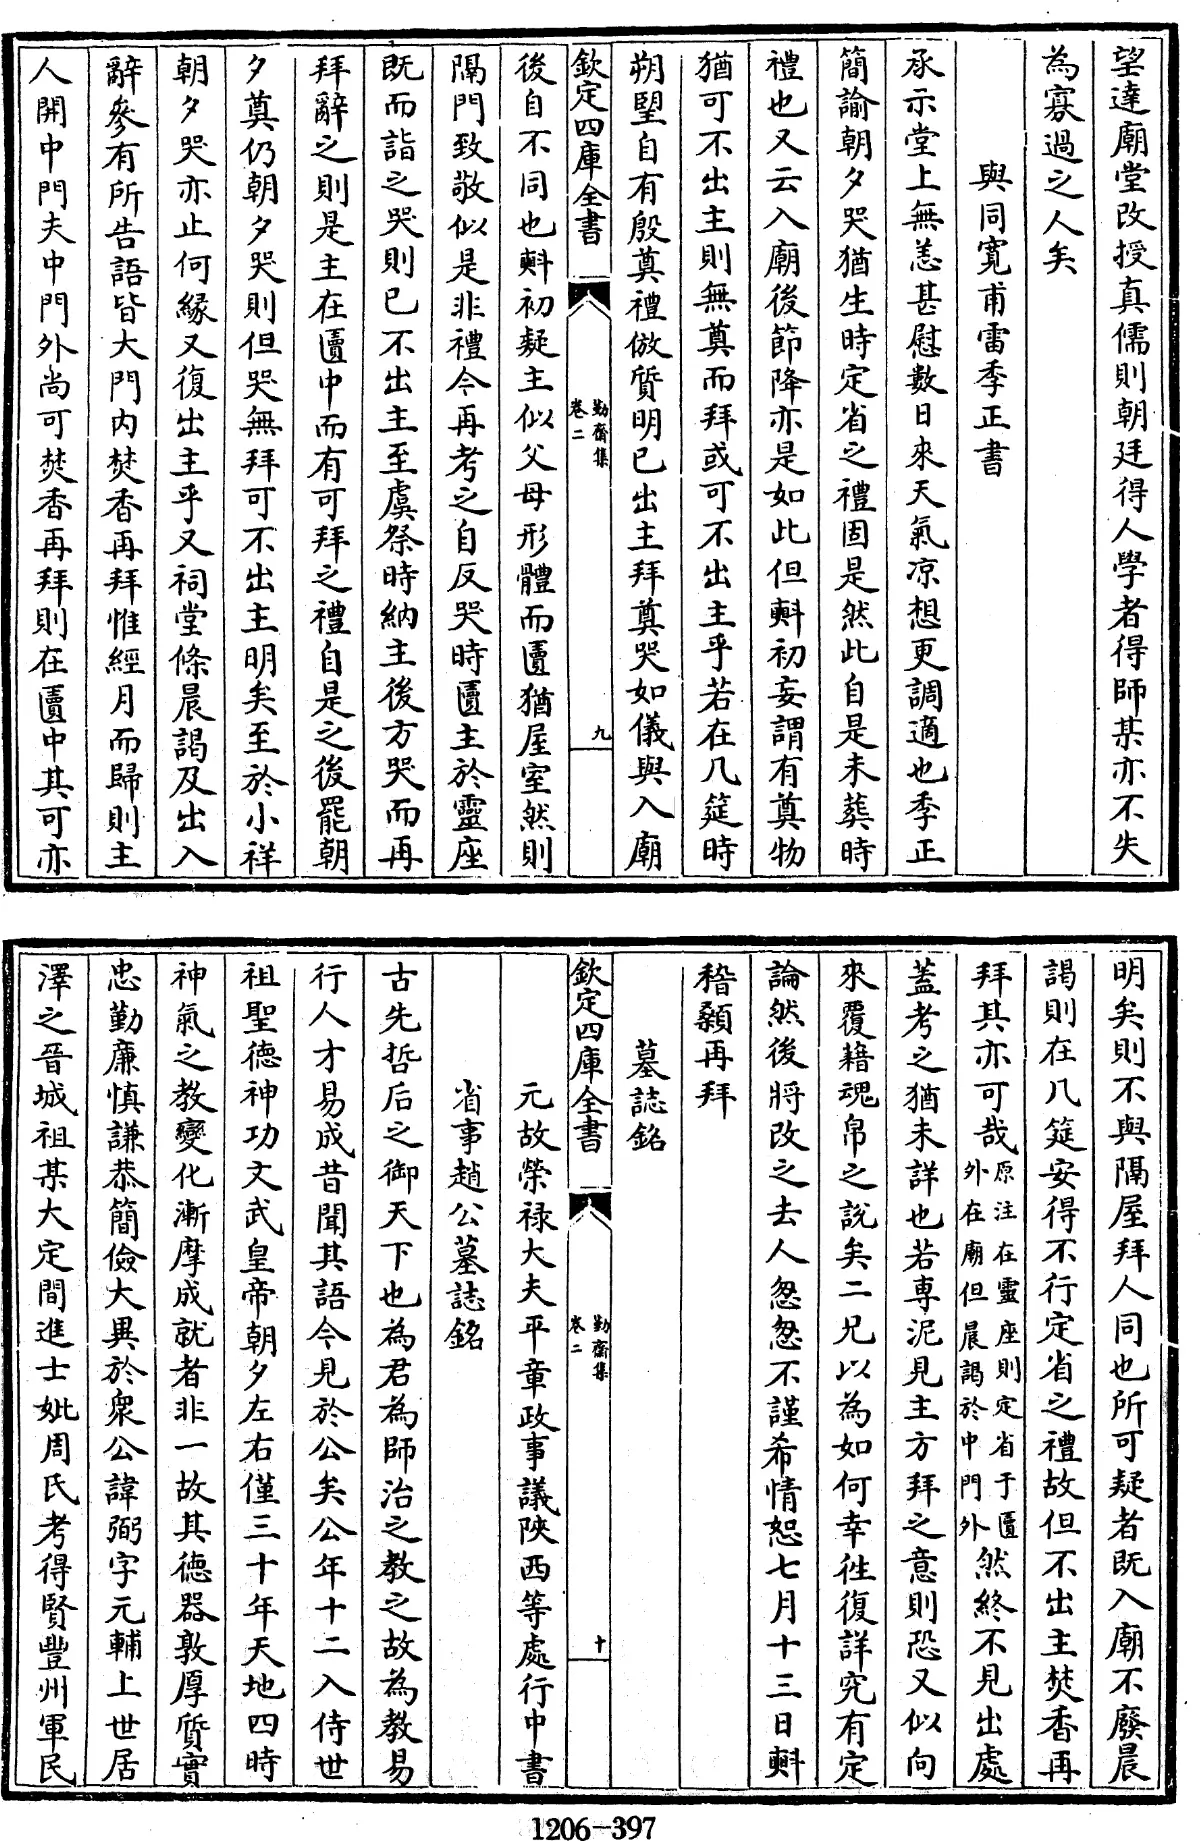 望達廟堂改授真儒則朝廷得人學者得師某亦不失
為寡過之人矣
與同寛甫雷季正書
承示堂上無恙甚慰數日來天氣凉想更調適也季正
簡諭朝夕哭猶生時定省之禮固是然此自是未葬時
禮也又云入廟後節降亦是如此但㪺初妄謂有奠物
猶可不出主則無奠而拜或可不出主乎若在几筵時
朔朢自有殷奠禮倣質明已出主拜奠哭如儀與入廟
欽定四庫全書
勤齋集
卷二
九
後自不同也㪺初疑主似父母形體而匵猶屋室然則
隔門致敬似是非禮今再考之自反哭時匵主於靈座
既而詣之哭則已不出主至虞祭時納主後方哭而再
拜辭之則是主在匵中而有可拜之禮自是之後罷朝
夕奠仍朝夕哭則但哭無拜可不出主明矣至於小祥
朝夕哭亦止何緣又復出主乎又祠堂條晨謁及出入
辭參有所告語皆大門内焚香再拜惟經月而歸則主
人開中門夫中門外尚可焚香再拜則在匵中其可亦
明矣則不與隔屋拜人同也所可疑者既入廟不廢晨
謁則在几筵安得不行定省之禮故但不出主焚香再
拜其亦可哉原注在靈座則定省于匵外在廟但晨謁於中門外然終不見出處
蓋考之猶未詳也若專泥見主方拜之意則恐又似向
來覆藉魂帛之說矣二兄以為如何幸徃復詳究有定
論然後將改之去人怱怱不謹希情恕七月十三日㪺
稽顙再拜
墓誌銘
欽定四庫全書
勤齋集
卷二
十
元故榮禄大夫平章政事議陜西等處行中書
省事趙公墓誌銘
古先哲后之御天下也為君為師治之教之故為教易
行人才易成昔聞其語今見於公矣公年十二入侍世
祖聖德神功文武皇帝朝夕左右僅三十年天地四時
神氣之教變化漸摩成就者非一故其德器敦厚質實
忠勤廉慎謙恭簡儉大異於衆公諱弼字元輔上世居
澤之晉城祖某大定間進士妣周氏考得賢豐州軍民
1206-397